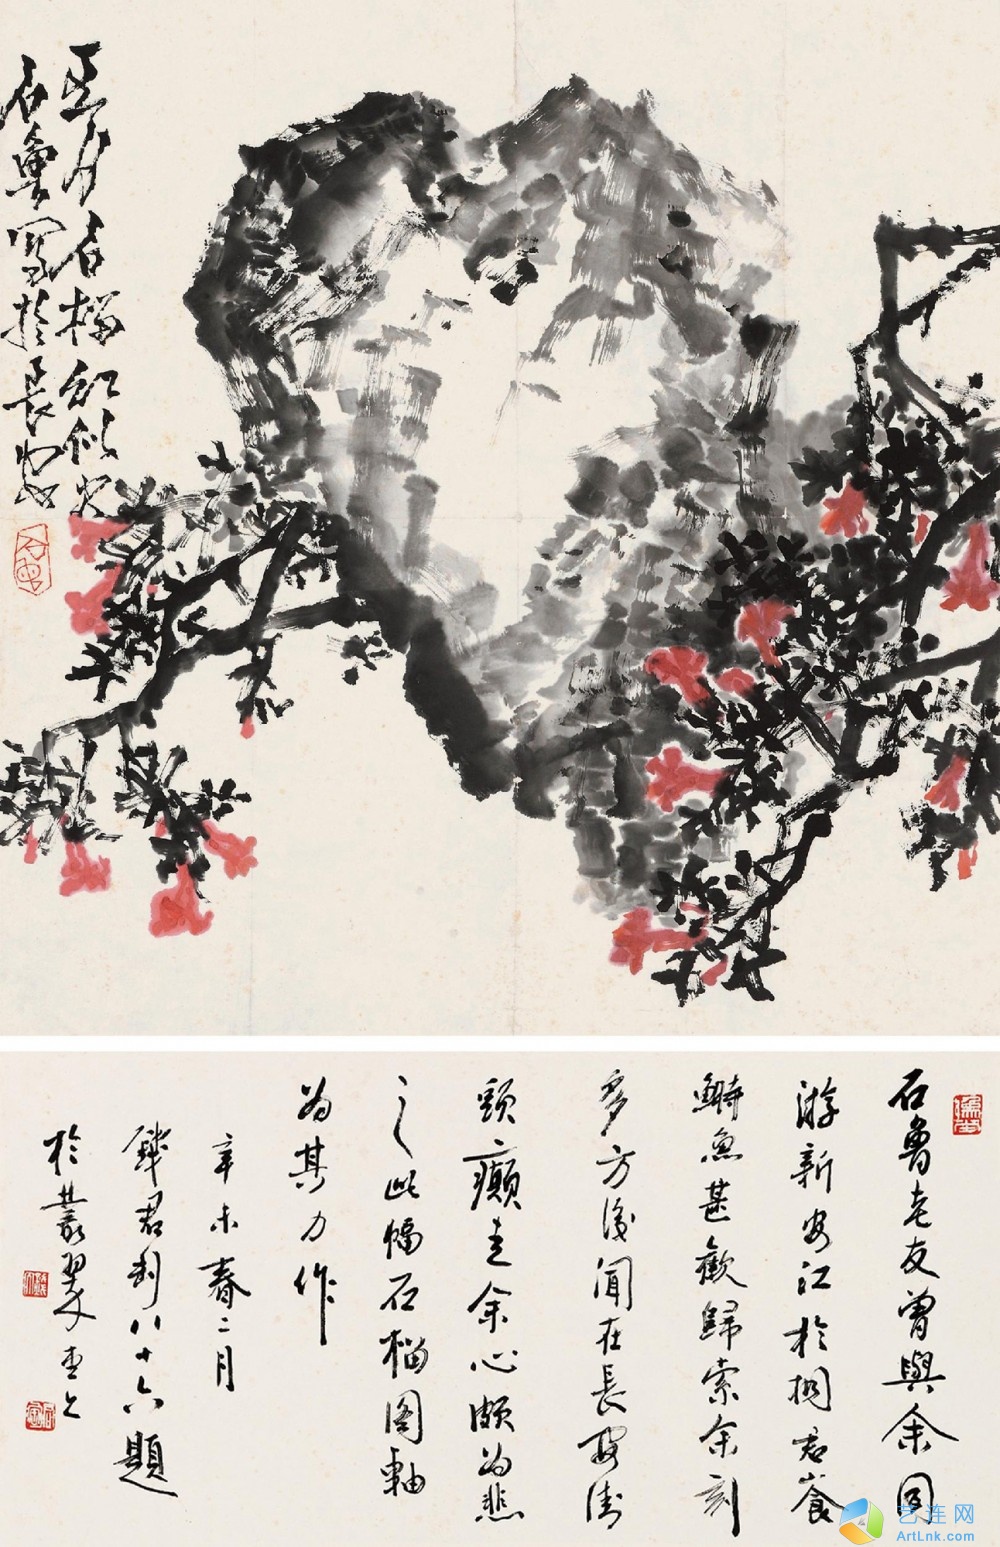 五月石榴紅似火
石魯寫於長安
石魯
石魯老友曾與余同
游新安江於桐君餐
鰣魚甚歡歸索余刻
多方後聞在長安街
頭癲走余心頗為悲
之此幅石榴图軸
為其力作
辛未春二月
錢君匋八十六題
於叢翠堂
艺连网
ArtLnk.com